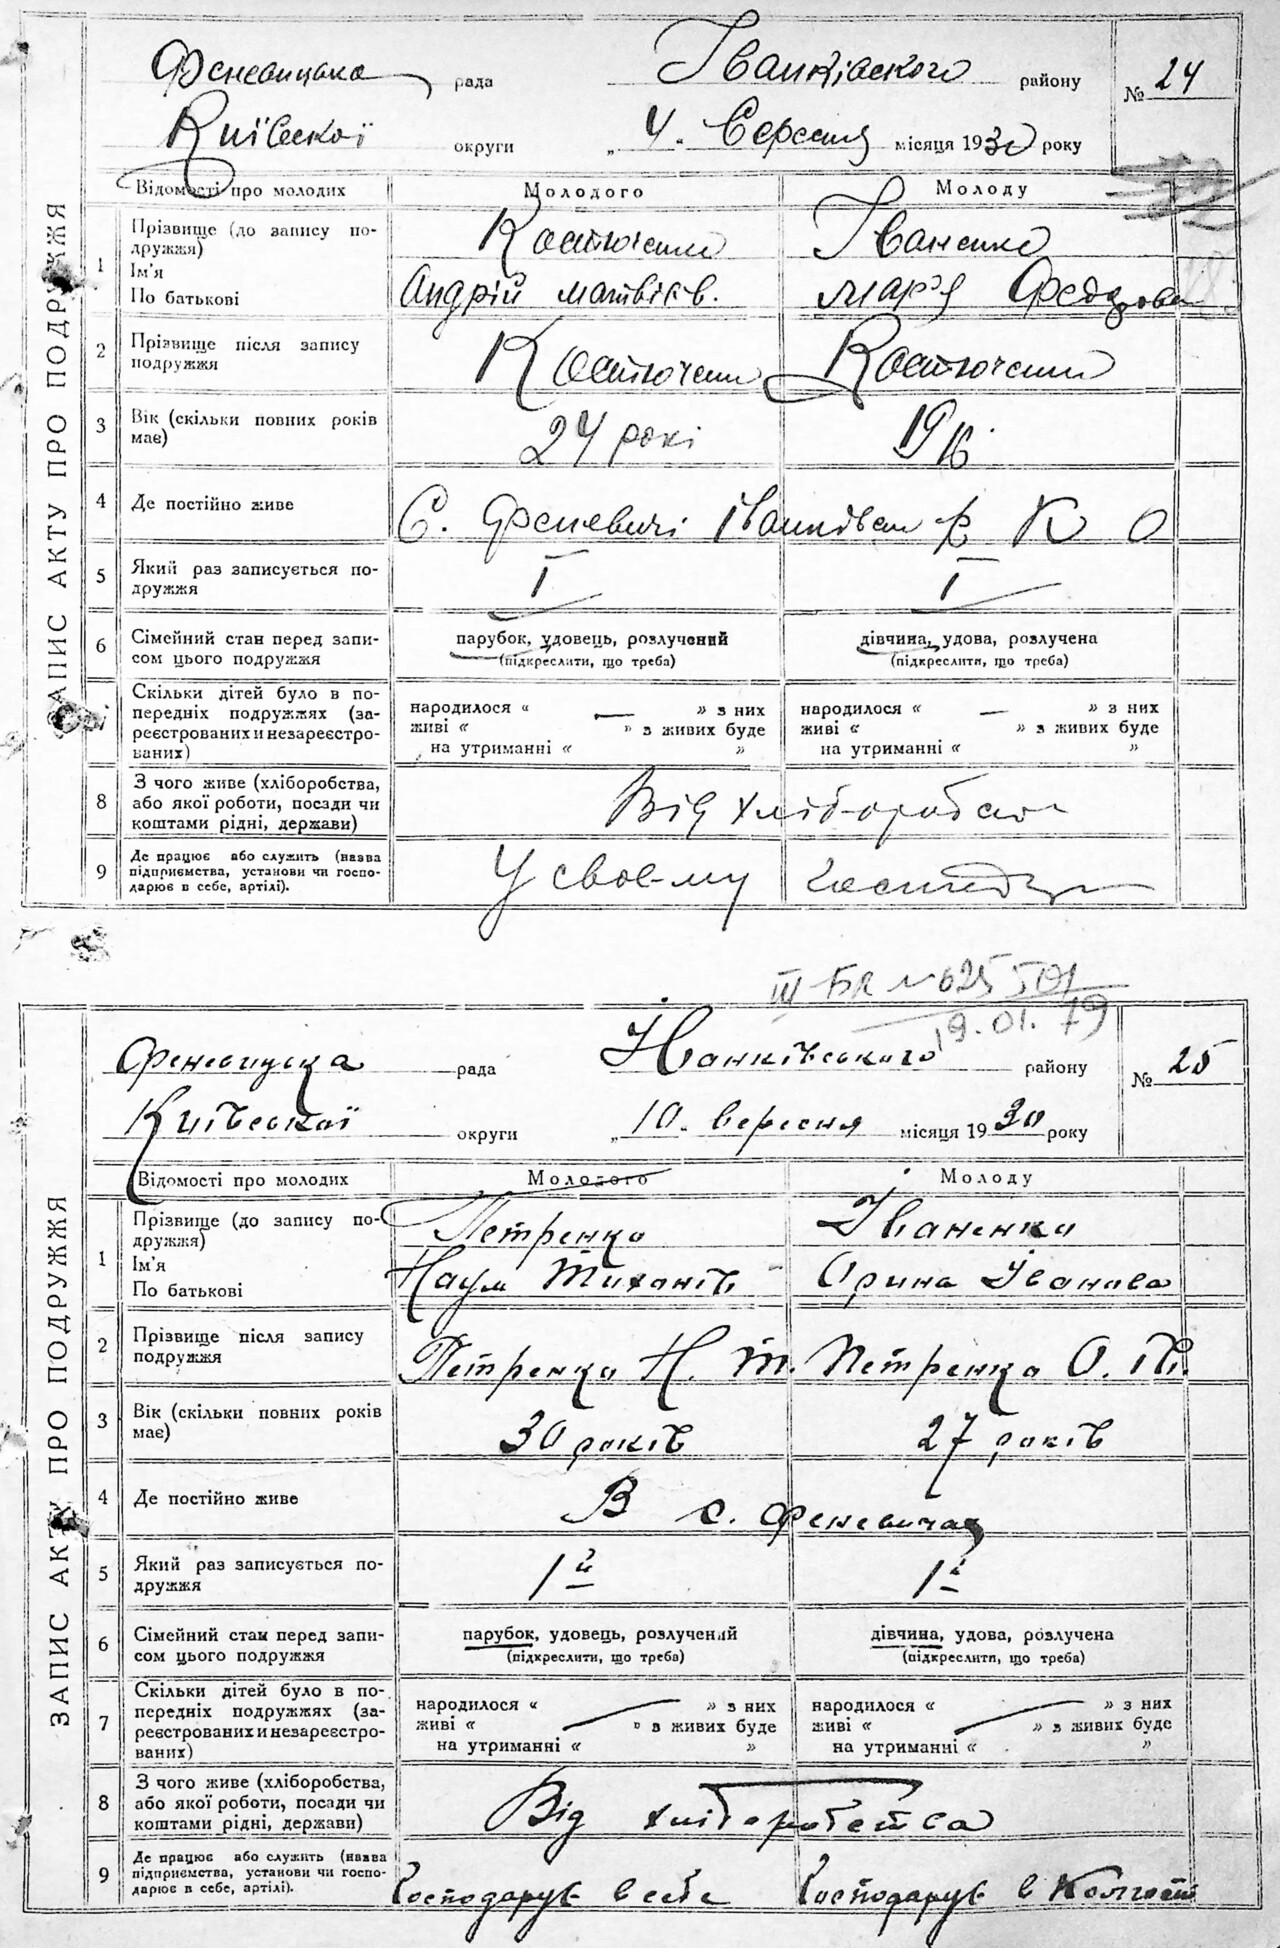 Феневицька рада Іванківского району № 24
Київскої округи „4. Вересня місяця 1930 року
ЗАПИС АКТУ ПРО ПОДРУЖЖЯ
Відомості про молодих Молодого Молоду
1 Прізвище (до запису по-
дружжя) Костючеш Іваненко
Ім'я
По батькові Андрій Матвіїв. Мар'я Федорова
2 Прізвище після запису
подружжя Костючеш Костючеш
3 Вік (скільки повних років
має) 24 рокі 19
4 Де постійно живе С. Феневичі Іванківськ р К О
5 Який раз записується по-
дружжя І І
6 Сімейний стан перед запи-
сом цього подружжя
парубок, удовець, розлучений дівчина, удова, розлучена
(підкреслити, що треба) (підкреслити, що треба)
7 Скільки дітей було в по-
передніх подружжях (за-
реєстрованих и незареєстро-
ваних)
народилося « — » з них народилося « — » з них
живі « » з живих буде живі « » з живих буде
на утриманні « » на утриманні « »
8 З чого живе (хліборобства,
або якої роботи, посади чи
коштами рідні, держави) Від хліборобст
9 Де працює або служить (назва
підприємства, установи чи госпо-
дарює в себе, артілі). У своє-му господ
III-БК № 625501
19.01.79
Феневицька рада Іванківського району № 25
Київської округи „10. вересня місяця 1930 року
ЗАПИС АКТУ ПРО ПОДРУЖЖЯ
Відомості про молодих Молодого Молоду
1 Прізвище (до запису по-
дружжя) Петренко Іваненко
Ім'я
По батькові Наум Тиханів Орина Іванова
2 Прізвище після запису
подружжя Петренко Н. Т. Петренко О. Ів.
3 Вік (скільки повних років
має) 30 років 27 років
4 Де постійно живе В с. Феневичах
5 Який раз записується по-
дружжя 1й 1й
6 Сімейний стан перед запи-
сом цього подружжя
парубок, удовець, розлучений дівчина, удова, розлучена
(підкреслити, що треба) (підкреслити, що треба)
7 Скільки дітей було в по-
передніх подружжях (за-
реєстрованих и незареєстро-
ваних)
народилося « — » з них народилося « — » з них
живі « » з живих буде живі « » з живих буде
на утриманні « » на утриманні « »
8 З чого живе (хліборобства,
або якої роботи, посади чи
коштами рідні, держави) Від хліборобства
9 Де працює або служить (назва
підприємства, установи чи госпо-
дарює в себе, артілі). Господарує в себе Господарує в Колгосп